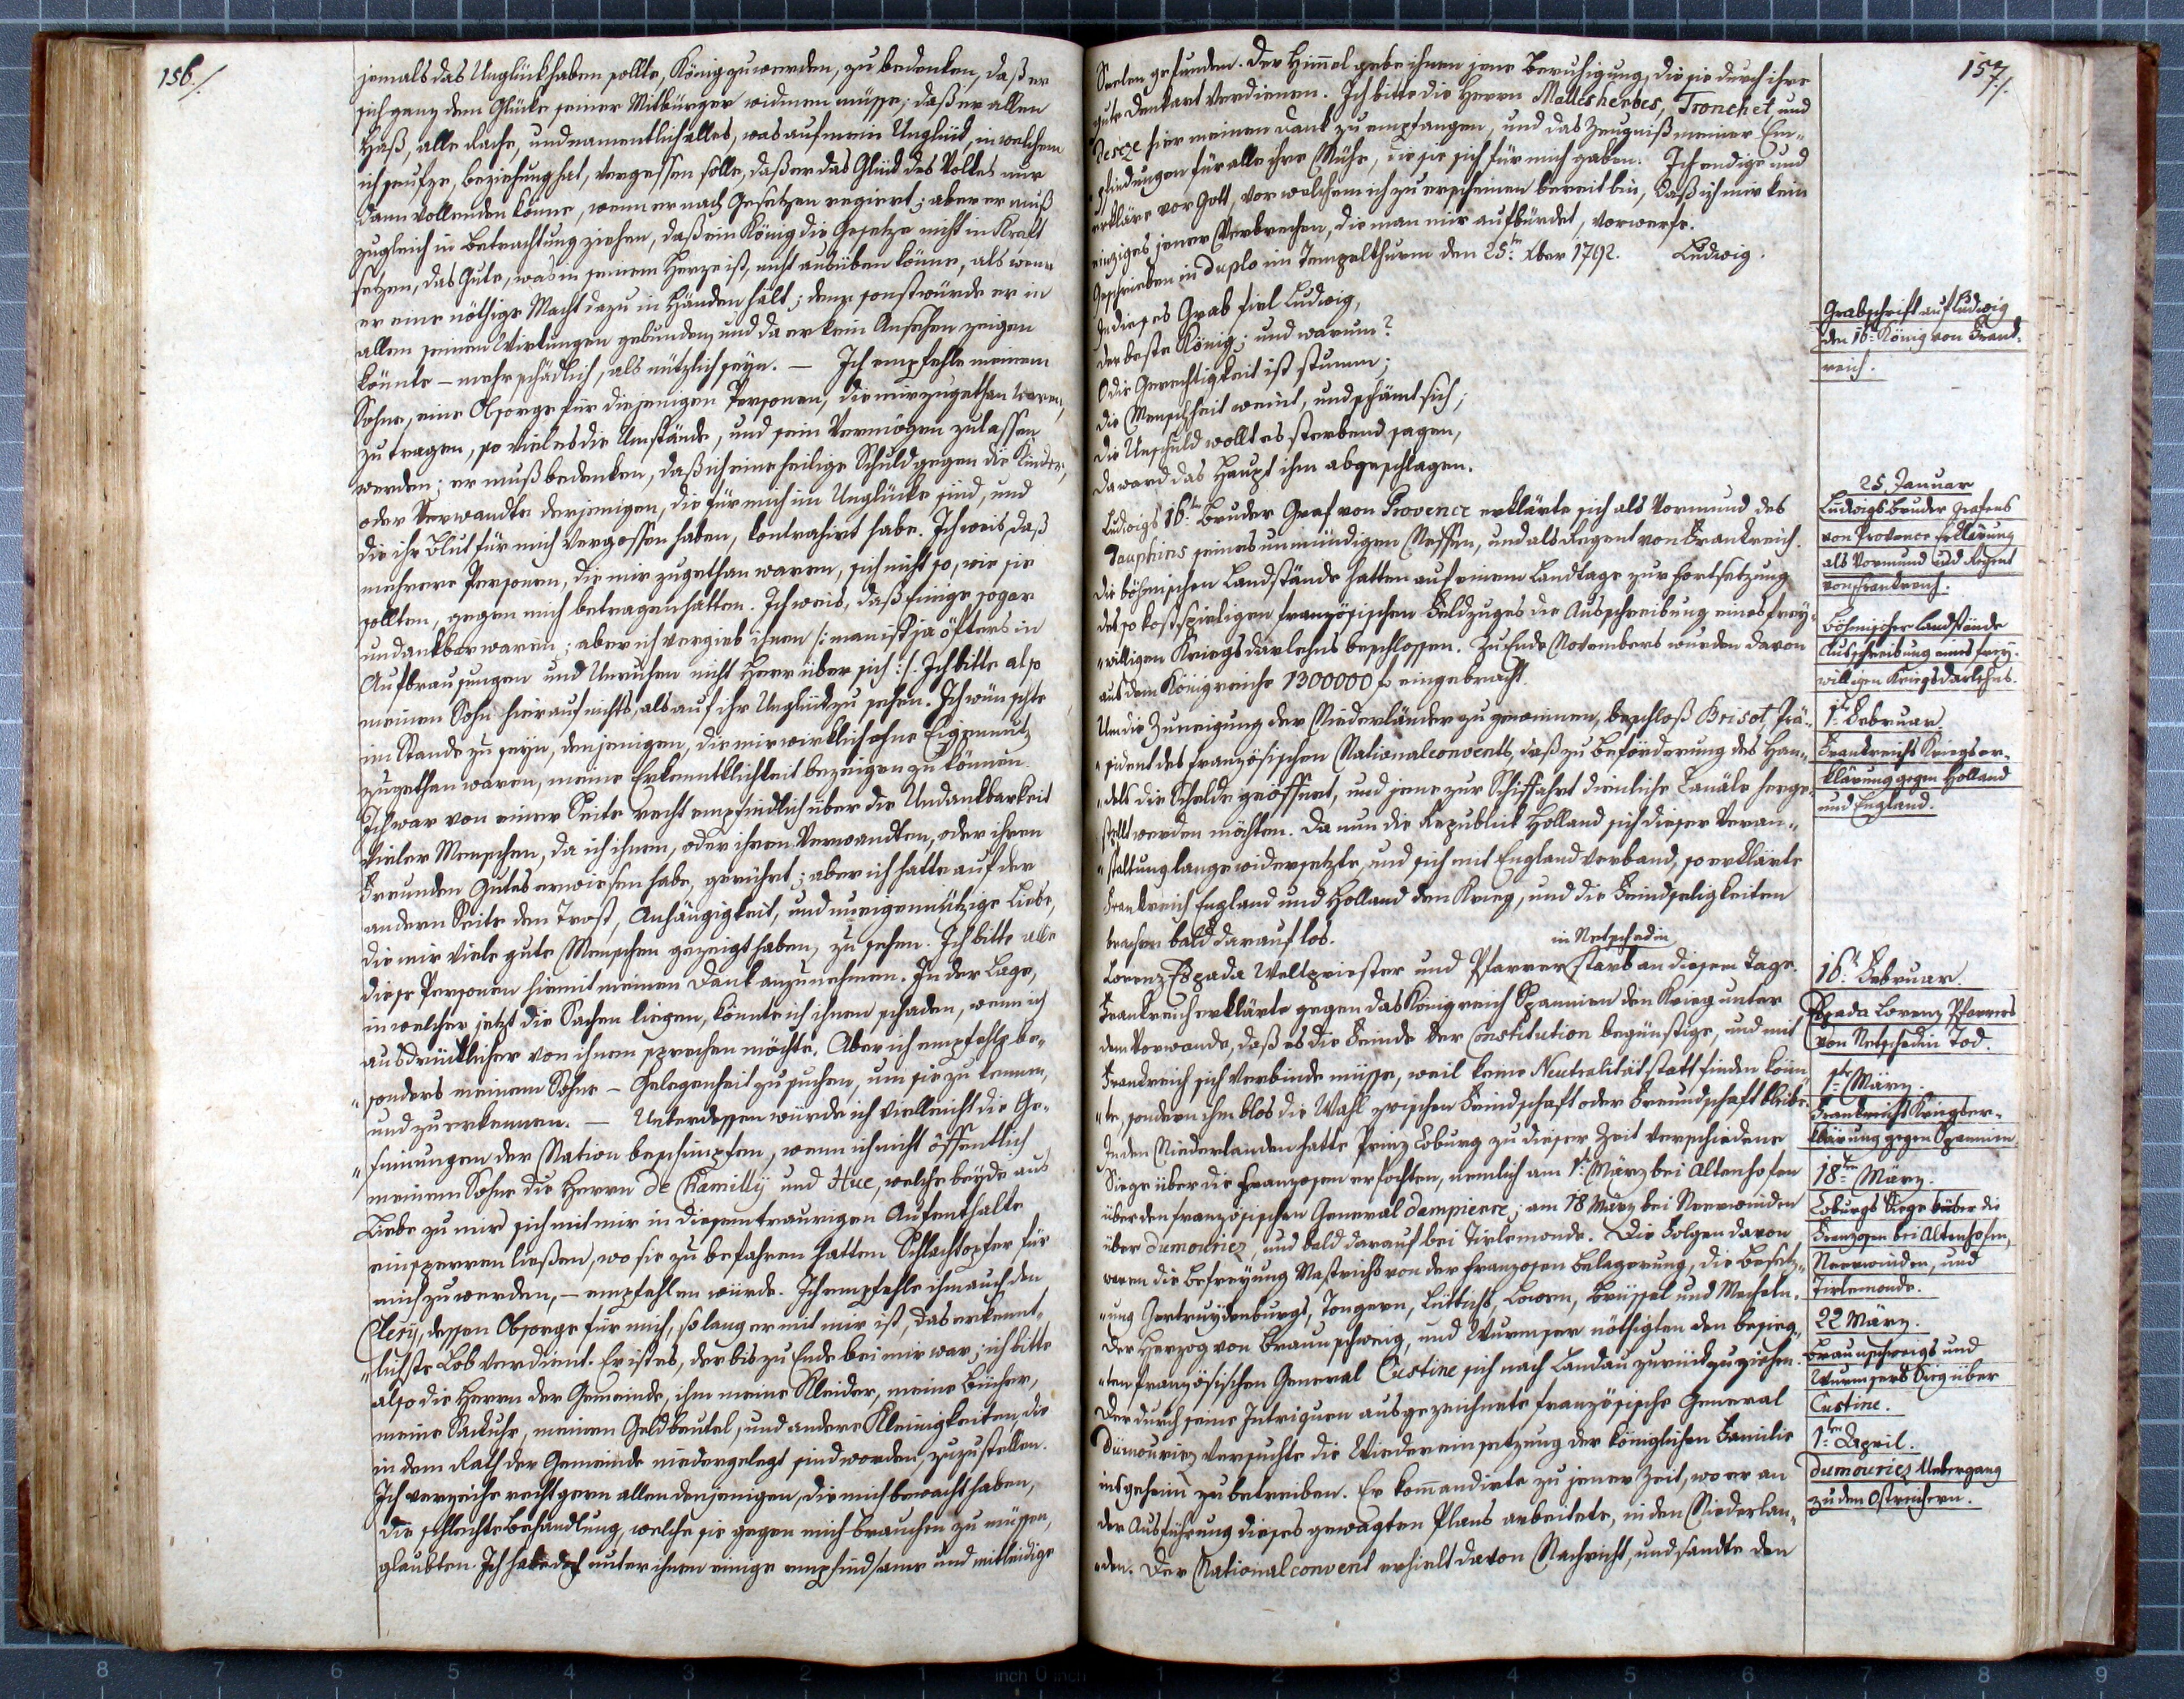 156./.
jemals das Unglück haben sollte, König zu werden, zu bedenken, daß er
sich ganz dem Glücke seiner Mitbürger widmen müsse; daß er allen
Haß, alle Rache, und namentlich alles, was auf mein Unglück, in welchem
ich seufze, beziehung hat, vergessen solle, daß er das Glück des Volkes nur
dann vollenden könne, wenn er nach Gesetzen regiert; aber er muß
zugleich in Betrachtung ziehen, daß ein König die Gesetze nicht in Kraft
setzen, das Gute, was in seinem Herze ist, nicht ausüben könne, als wenn
er eine nöthige Macht dazu in Händen hält; denn sonst würde er in
allen seinen Wirkungen gebunden, und da er kein Ansehen zeigen
könnte – mehr schädlich, als nützlich seyn. – Ich empfehle meinem
Sohne, eine Obsorge für diejenigen Personen, die mir zugethan waren,
zu tragen, so viel es die Umstände, und sein Vermögen zulassen
werden; er muß bedenken, daß ich eine heilige Schuld gegen die Kinder,
oder Verwandte derjenigen, die für mich im Unglücke sind, und
die ihr Blut für mich vergossen haben, kontrahirt habe. Ich weis, daß
mehrere Personen, die mir zugethan waren, sich nicht so, wie sie
sollten, gegen mich betragen hatten. Ich weis, daß Einige sogar
undankbar waren; aber ich vergieb ihnen /: man ist ja öfters in
Aufbrausungen und Unruhen nicht Herr über sich :/. Ich bitte also
meinen Sohn hierauf nichts, als auf ihr Unglück zu sehen. Ich wünschte
im Stande zu seyn, denjenigen, die mir wirklich ohne Eigennutz
zugethan waren, meine Erkenntlichkeit bezeigen zu können.
Ich war von einer Seite recht empfindlich über die Undankbarkeit
vieler Menschen, da ich ihnen, oder ihren Verwandten, oder ihren
Freunden Gutes erwiesen habe, gerührt; aber ich hatte auf der
andern Seite den Trost, Anhängigkeit, und uneigennützige Liebe,
die mir viele gute Menschen gezeigt haben, zu sehen. Ich bitte alle
diese Personen hiemit meinen Dank anzunehmen. In der Lage,
in welcher jetzt die Sachen liegen, könnte ich ihnen schaden, wenn ich
ausdrücklicher von ihnen sprechen möchte. Aber ich empfehle be„
„sonders meinem Sohne – Gelegenheit zu suchen, um sie zu kennen,
und zu erkennen. – Unterdessen würde ich vielleicht die Ge„
„sinnungen der Nation beschimpfen, wenn ich nicht öffentlich
meinem Sohne die Herrn de Chamillÿ und Hue, welche beyde aus
Liebe zu mir sich mit mir in diesem traurigen Aufenthalte
einsperren ließen, wo sie zu befahren hatten Schlachtopfer für
mich zu werden, – empfehlen würde. Ich empfehle ihm auch den
Clerÿ, dessen Obsorge für mich, so lang er mit mir ist, das erkennt„
„lichste Lob verdient. Er ist es, der bis zu Ende bei mir war; ich bitte
also die Herrn der Gemeinde, ihm meine Kleider, meine Bücher,
meine Sackuhr, meinen Geldbeutel, und andere Kleinigkeiten, die
in dem Rath der Gemeinde niedergelegt sind worden, zuzustellen.
Ich verzeihe recht gern allen denjenigen, die mich bewacht haben,
die schlechte Behandlung, welche sie gegen mich brauchen zu müssen,
glaubten. Ich habe doch unter ihnen einige empfindsame und mitleidige
157./.
Seelen gefunden. Der Himmel gebe ihnen jene Beruhigung, die sie durch ihre
gute Denkart verdienen. Ich bitte die Herrn Mallesherbes, Tronchet und
Deseze hier meinen Dank zu empfangen, und das Zeugniß meiner Em„
„pfindungen für alle ihre Mühe, die sie sich für mich gaben. Ich endige und
erkläre vor Gott, vor welchem ich zu erscheinen bereit bin, daß ich mir kein
einziges jener Verbrechen, die man mir aufbürdet, vorwerfe.
Geschrieben in duplo im Tempelthurm den 25ten Xber 1792. Ludwig.
In dieses Grab fiel Ludwig,
der beste König; und warum?
O die Gerechtigkeit ist stumm;
die Menschheit weint, und schämt sich;
die Unschuld wollt es sterbend sagen,
da ward das Haupt ihm abgeschlagen.
Ludwigs 16ten Bruder Graf von Provence erklärte sich als Vormund des
Dauphins seines unmündigen Neffen, und als Regent von Frankreich.
Die böhmischen Landstände hatten auf einem Landtage zur Fortsetzung
des so kostspieligen französischen Feldzuges die Ausschreibung eines frey„
„willigen Kriegsdarlehns beschlossen. Zu Ende Novembers wurden davon
aus dem Königreiche 1300000 f. eingebracht.
Um die Zuneigung der Niederländer zu gewinnen, beschloß Brisot Prä„
„sident des französischen Nationalconvents, daß zu Beförderung des Han„
„dels die Schelde geöffnet, und jene zur Schiffahrt dienliche Canäle herge„
stellt werden möchten. Da nun die Republick Holland sich dieser Veran„
„staltung lange widersetzte, und sich mit England verband, so erklärte
Frankreich England und Holland den Krieg, und die Feindseligkeiten
brachen bald darauf los.
in Netschedin
Lorenz Espada Weltpriester und Pfarrer starb an diesem Tage.
Frankreich erklärte gegen das Königreich Spannien den Krieg unter
dem Vorwande, daß es die Feinde der Constitution begünstige, und mit
Frankreich sich verbinde müsse, weil keine Neutralität statt finden könn„
„te, sondern ihm blos die Wahl zwischen Feindschaft oder Freundschaft bleibe.
In den Niederlanden hatte Prinz Coburg zu dieser Zeit verschiedene
Siege über die Franzosen erfochten, nemlich am 1ten März bei Altenhofen
über den französischen General Dampierre; am 18 März bei Neerwinden
über Dumouriez, und bald darauf bei Tirlemonde. Die Folgen davon
waren die Befreyung Mastrichs von der Franzosen Belagerung, die Besetz„
„ung Gertruydenburgs, Tongern, Lüttichs, Lowen, Brüssel und Mecheln.
Der Herzog von Braunschweig, und Wurmser nöthigten den besieg„
„ten französischen General Custine sich nach Landau zurück zu ziehen.
Der durch seine Intriguen ausgezeichnete französische General
Dümouriez versuchte die Wiedereinsetzung der königlichen Familie
insgeheim zu betreiben. Er kommandirte zu jener Zeit, wo er an
der Ausführung dieses gewagten Plans arbeitete, in den Niederlan„
„den. Der Nationalconvent erhielt davon Nachricht, und sandte den
Grabschrift auf Ludwig
den 16ten König von Frank„
reich.
25. Januar
Ludwigs Bruder Grafens
von Provence Erklärung
als Vormund und Regent
von Frankreich.
Böhmischer Landstände
Ausschreibung eines frey„
willigen Kriegsdarlehns.
1te Februar.
Frankreichs Kriegser„
klärung gegen Holland
und England.
16te Februar.
Espada Lorenz Pfarrers
von Netschedin Tod.
1te März.
Frankreichs Kriegser„
klärung gegen Spannien.
18ten März.
Coburgs Siege über die
Franzosen bei Altenhofen,
Neerwinden, und
Tirlemonde.
22 März.
Braunschweigs und
Wurmsers Sieg über
Custine.
1ten April.
Dumouriez Uebergang
zu den Ostreichern.
8 7 6 5 4 3 2 1 inch 0 inch 1 2 3 4 5 6 7 8 9